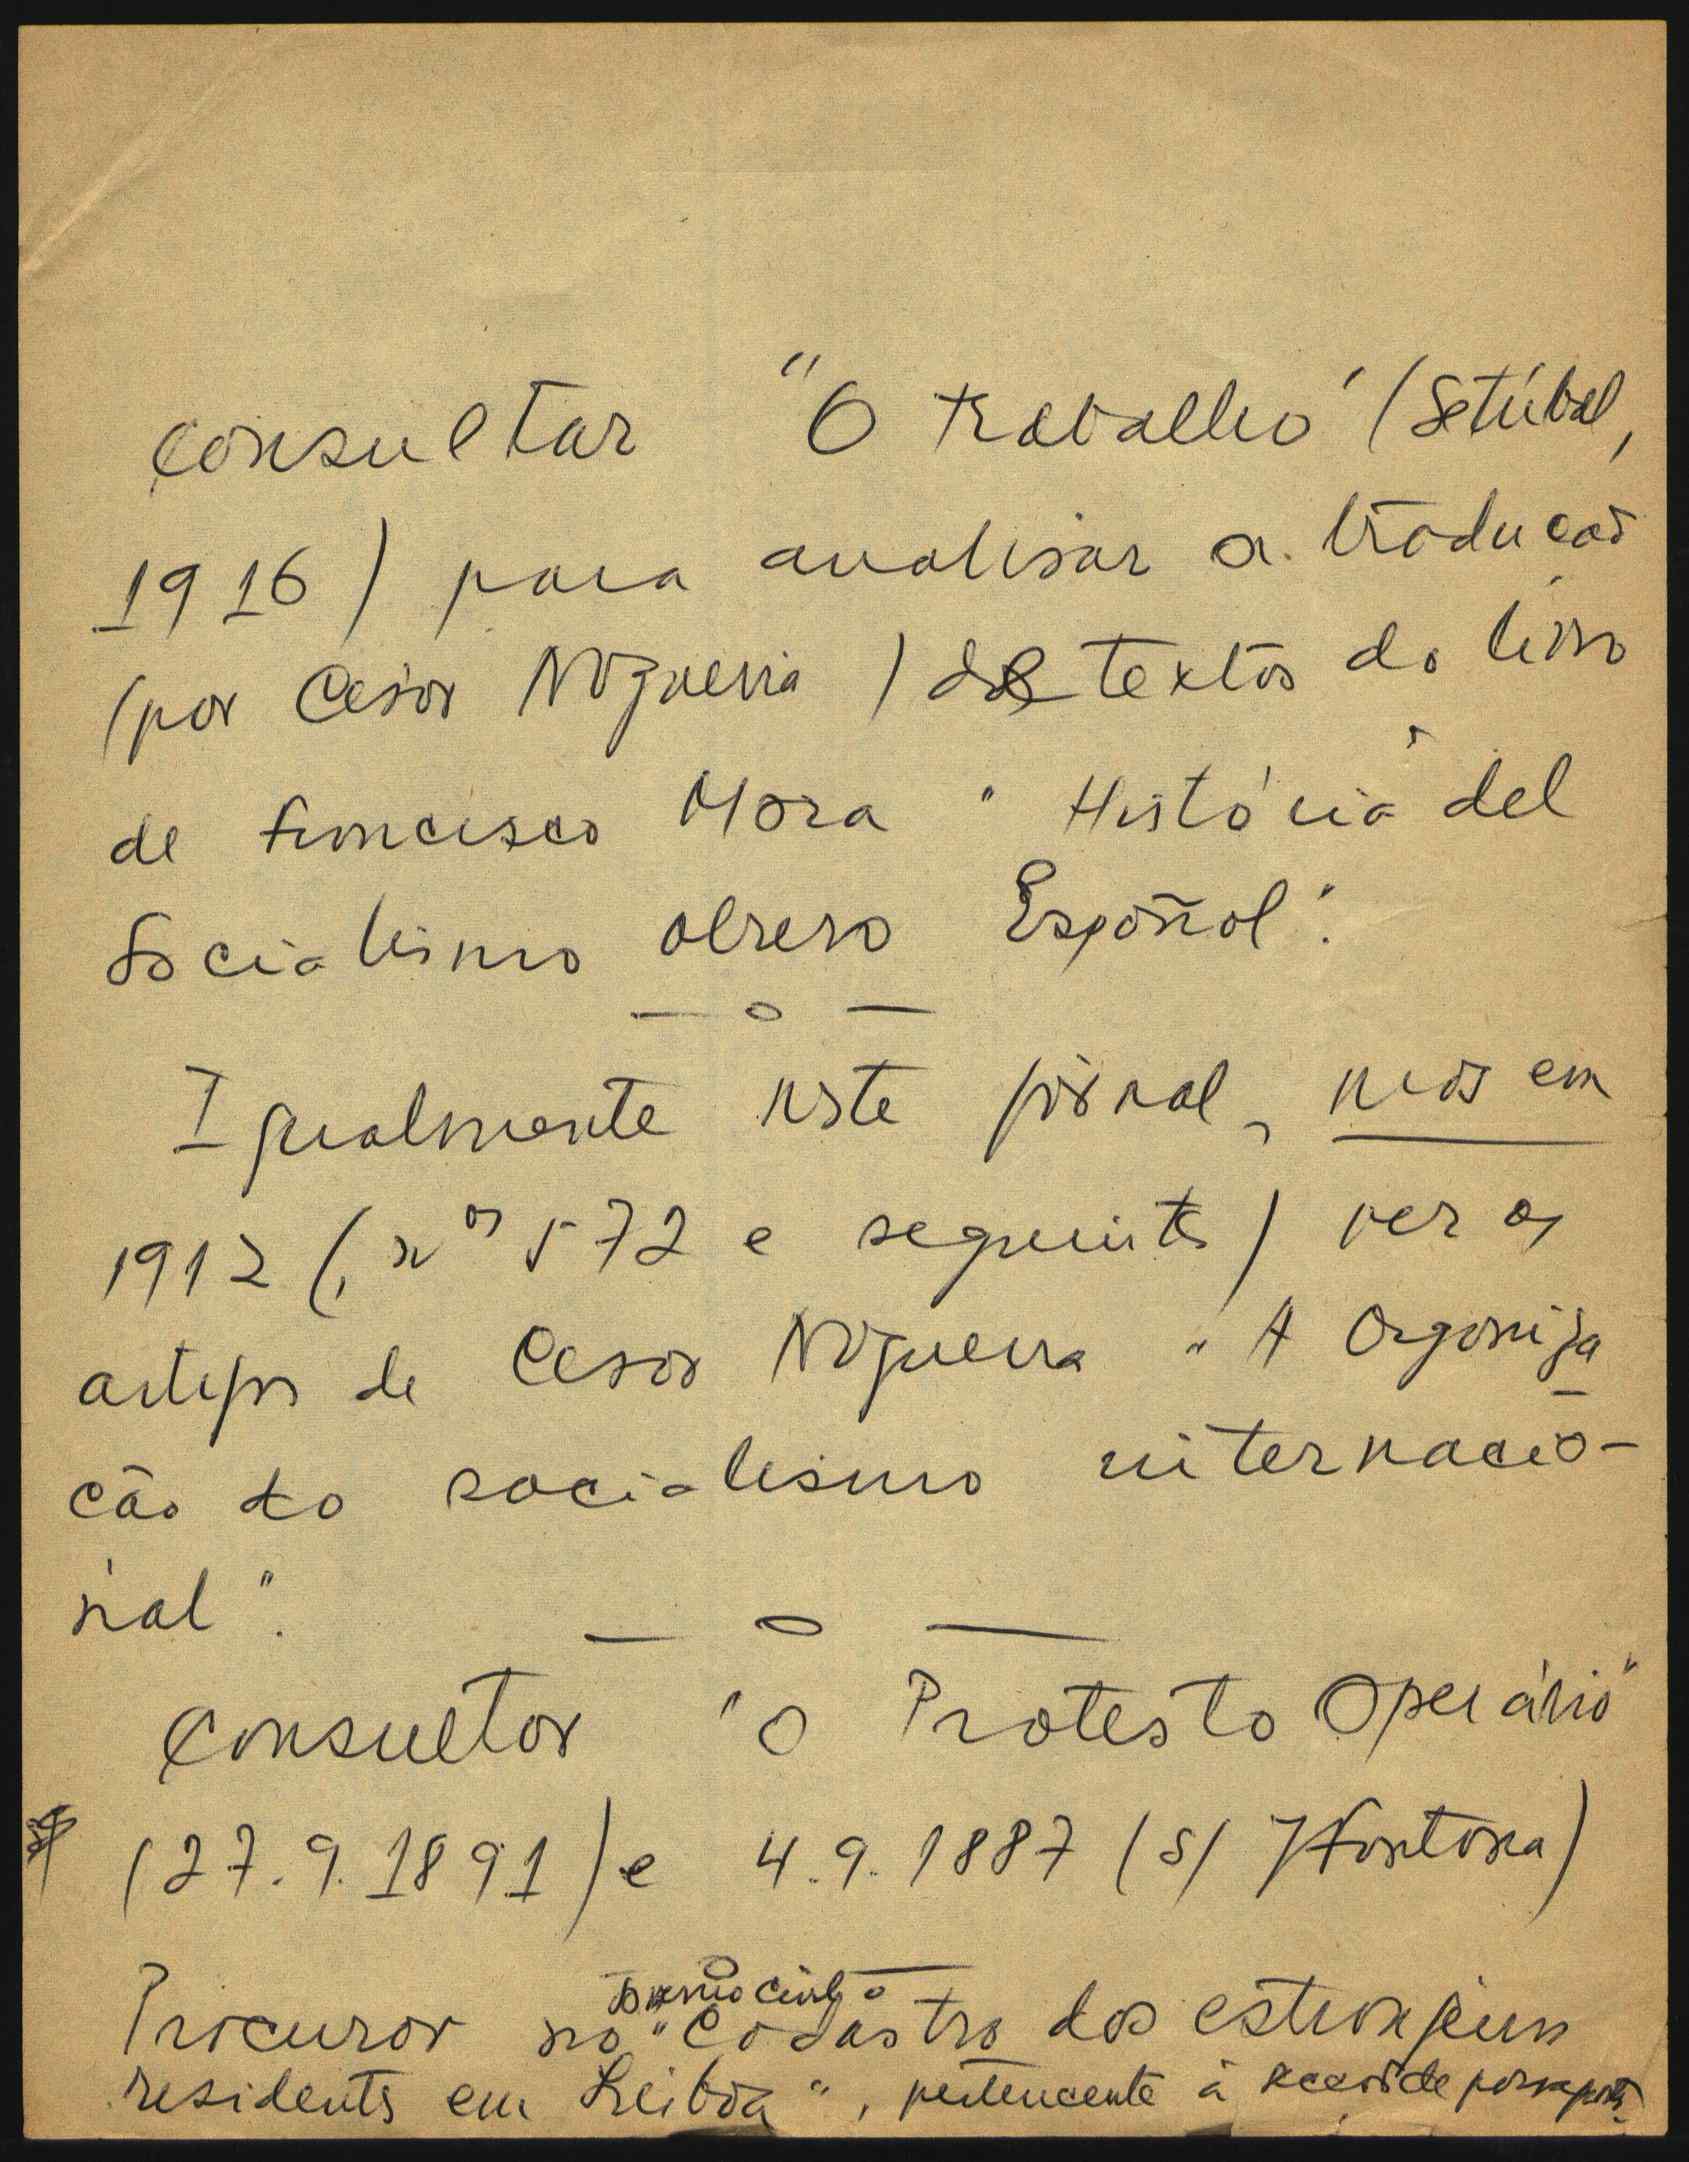 Consultar "O trabalho" (Setúbal,
1916) para analisar a tradução
(por Cesar Nogueira) de textos do livro
de Francisco Mora "História del
Socialismo obrero Español".
— o —
Igualmente neste jornal, mas em
1912 (nos 572 e seguintes) ver os
artigos de Cesar Nogueira "A Organiza
ção do socialismo internacio-
nal".
— o —
Consultar "O Protesto Operário"
(27.9.1891) e 4.9.1887 (s/ J Fontana)
— o —
Procurar no "Cadastro dos estrangeiros
residentes em Lisboa", pertencente à secção de passaportes